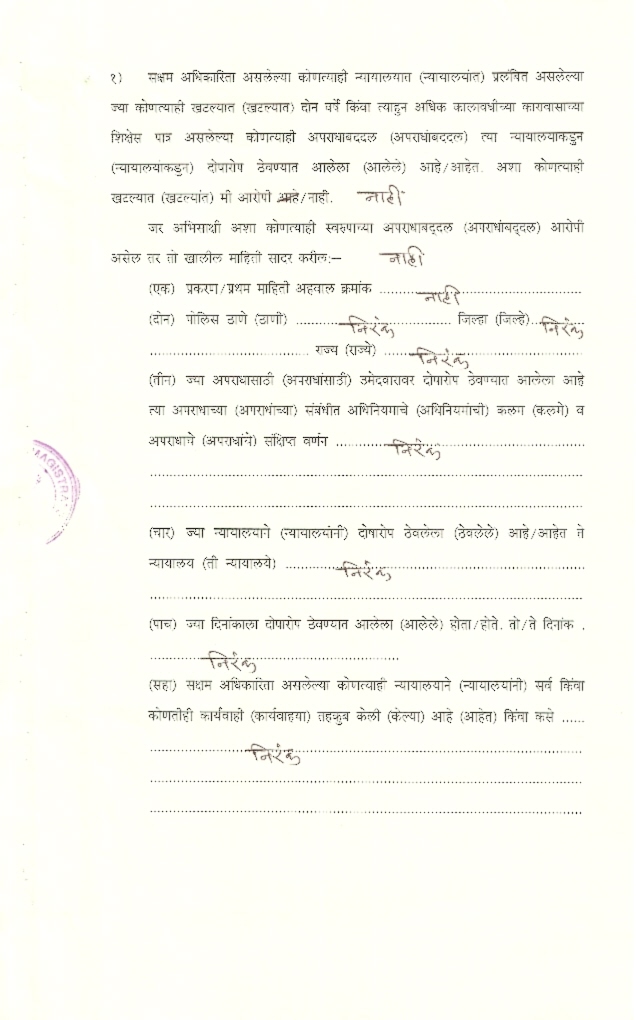 १) सक्षम अधिकारिता असलेल्या कोणत्याही न्यायालयात (न्यायालयांत) प्रलंबित असलेल्या
ज्या कोणत्याही खटल्यात (खटल्यात) दोन वर्षे किंवा त्याहुन अधिक कालावधीच्या कारावासाच्या
शिक्षेस पात्र असलेल्या कोणत्याही अपराधाबददल (अपराधांबददल) त्या न्यायालयाकडुन
(न्यायालयांकडुन) दोषारोप ठेवण्यात आलेला (आलेले) आहे/आहेत. अशा कोणत्याही
खटल्यात (खटल्यांत) मी आरोपी आहे/नाही. नाही
जर अभिसाक्षी अशा कोणत्याही स्वरुपाच्या अपराधाबद्दल (अपराधांबद्दल) आरोपी
असेल तर तो खालील माहिती सादर करील:– नाही
(एक) प्रकरण/प्रथम माहिती अहवाल क्रमांक ........ नाही ........
(दोन) पोलिस ठाणे (ठाणी) ........ निरंक ........ जिल्हा (जिल्हे) .. निरंक
........ राज्य (राज्ये) ........ निरंक ........
(तीन) ज्या अपराधासाठी (अपराधांसाठी) उमेदवारावर दोषारोप ठेवण्यात आलेला आहे
त्या अपराधाच्या (अपराधांच्या) संबंधीत अधिनियमाचे (अधिनियमांची) कलम (कलमे) व
अपराधाचे (अपराधांचे) संक्षिप्त वर्णन ........ निरंक ........
(चार) ज्या न्यायालयाने (न्यायालयांनी) दोषारोप ठेवलेला (ठेवलेले) आहे/आहेत ते
न्यायालय (ती न्यायालये) ........ निरंक ........
(पाच) ज्या दिनांकाला दोषारोप ठेवण्यात आलेला (आलेले) होता/होते. तो/ते दिनांक .
........ निरंक ........
(सहा) सक्षम अधिकारिता असलेल्या कोणत्याही न्यायालयाने (न्यायालयांनी) सर्व किंवा
कोणतीही कार्यवाही (कार्यवाहया) तहकुब केली (केल्या) आहे (आहेत) किंवा कसे ......
........ निरंक ........